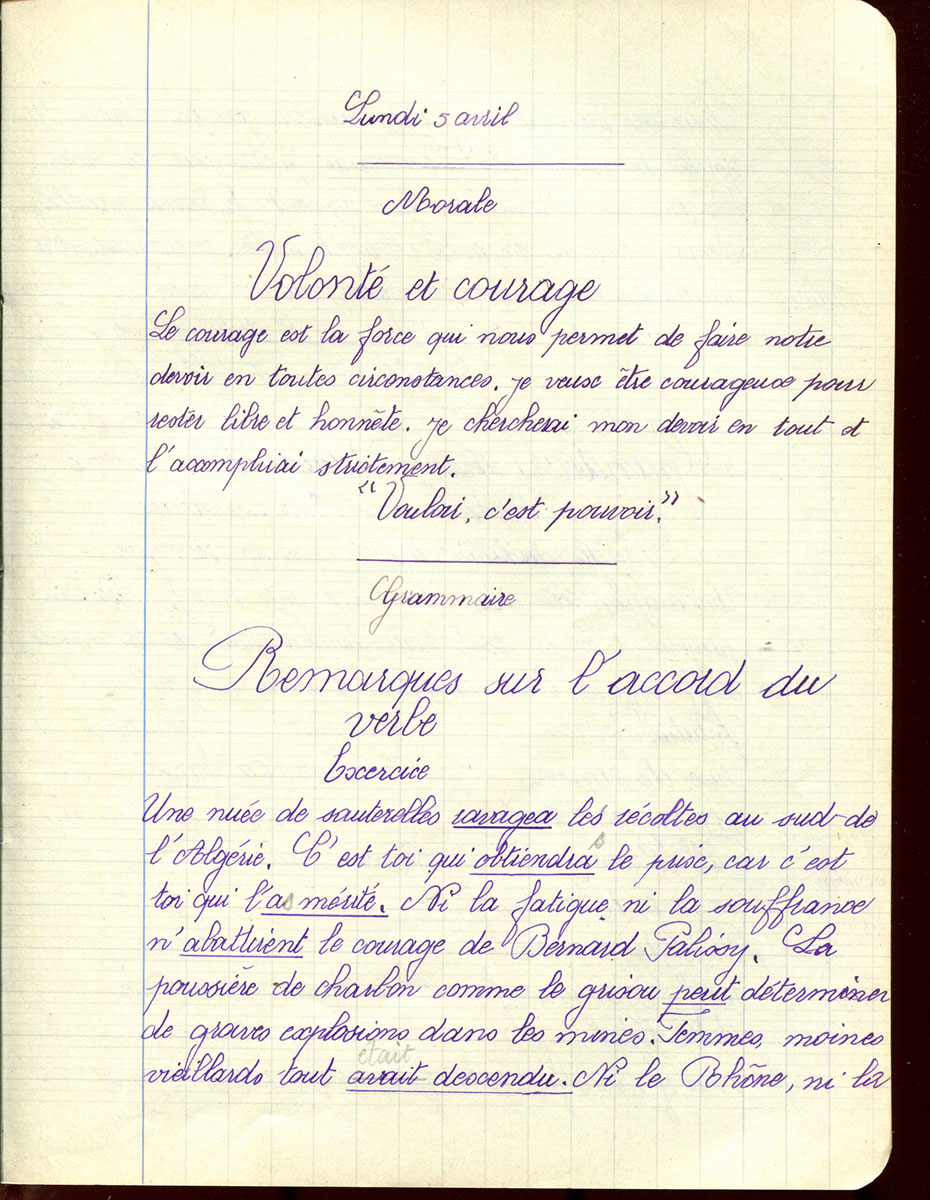 Lundi 5 avril
Morale
Volonté et courage
Le courage est la force qui nous permet de faire notre
devoir en toutes circonstances. je veux être courageux pour
rester libre et honnête. je chercherai mon devoir en tout et
l'accomplirai strictement.
"Vouloir, c'est pouvoir."
Grammaire
Remarques sur l'accord du
verbe
Exercice
Une nuée de sauterelles ravagea les récoltes au sud de
l'Algérie. C'est toi qui obtiendras le prix, car c'est
toi qui l'as mérité. Ni la fatigue ni la souffrance
n'abattirent le courage de Bernard Palissy. La
poussière de charbon comme le grisou peut déterminer
de graves explosions dans les mines. Femmes, moines
était
vieillards tout avait descendu. Ni le Rhône, ni la